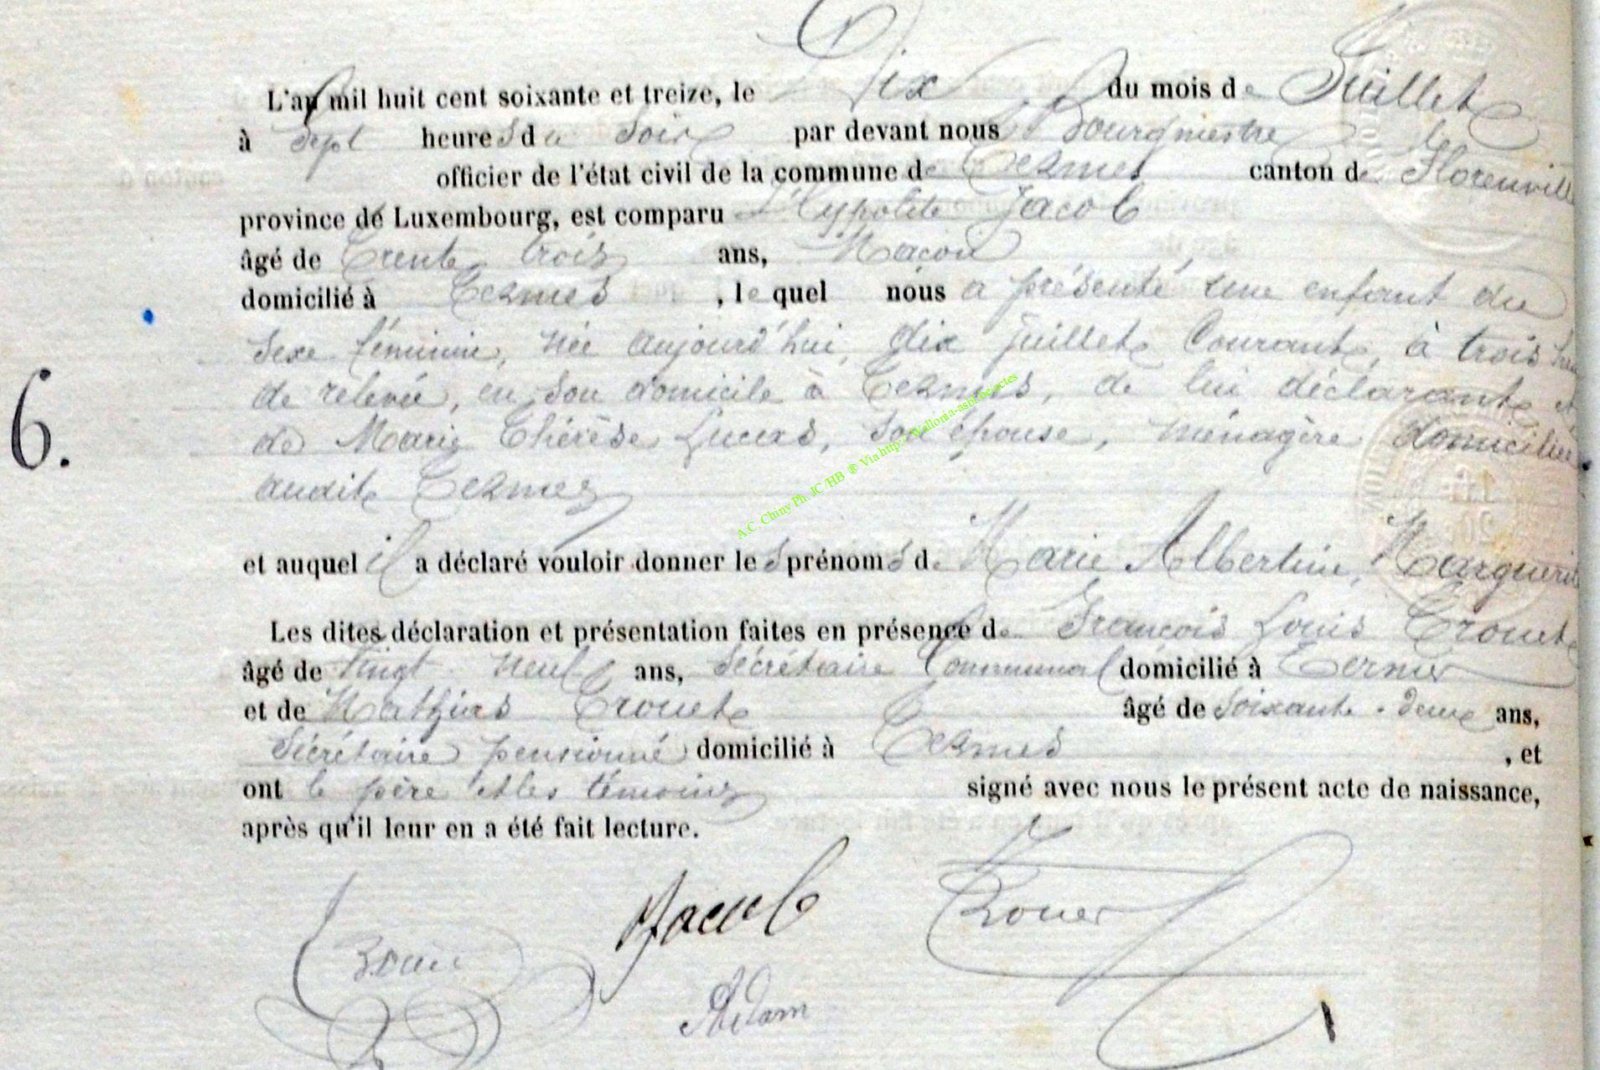 L'an mil huit cent soixante et treize, le Dix du mois de Juillet
à Sept heures du Soir par devant nous Bourgmestre
officier de l'état civil de la commune de Termes canton de Florenvill
province de Luxembourg, est comparu Hypolite Jacob
âgé de Trente trois ans, Maçon
domicilié à Termes, le quel nous a présenté une enfant du
Sexe féminin, née aujourd'hui, dix Juillet Courant, à trois
de relevée, en Son domicile à Termes, de lui déclarant et
6.
de Marie Thérèse Lucas, Son épouse, ménagère domiciliée
audit Termes
et auquel il a déclaré vouloir donner les prénoms de Marie Albertine, Marguerit
Les dites déclaration et présentation faites en présence de François Louis Trouet
âgé de Vingt neuf ans, Sécrétaire Communal domicilié à Termes
et de Mathias Trouet âgé de Soixante-deux ans,
Sécrétaire pensionné domicilié à Termes, et
ont le père et les témoins signé avec nous le présent acte de naissance,
après qu'il leur en a été fait lecture.
Jacob
Trouet
Adam
A.C. Chiny Ph. JC HB ® Via